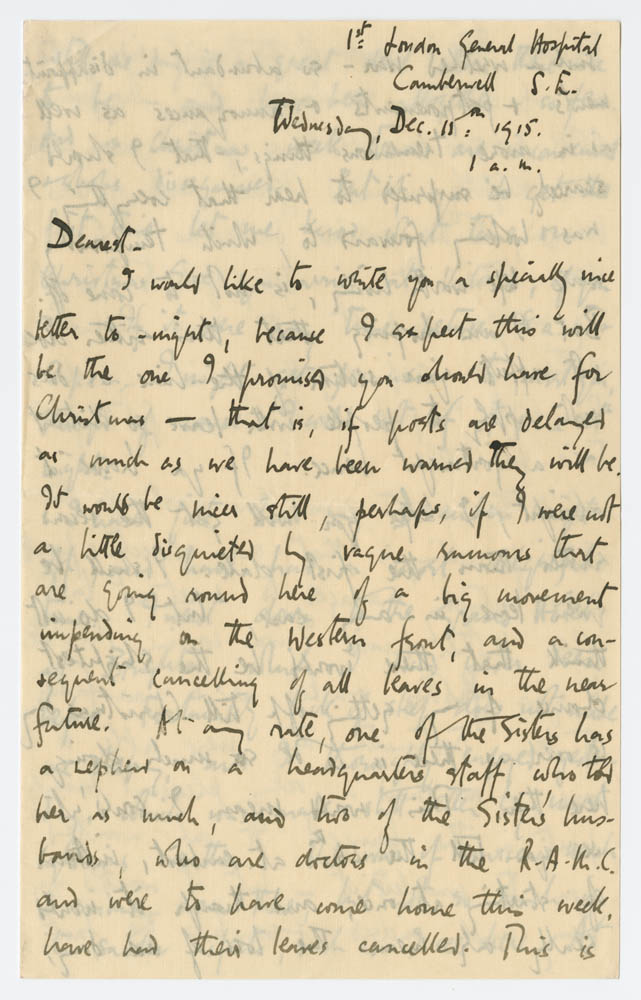 1st London General Hospital
Camberwell S.E.
Wednesday, Dec. 15th 1915.
1 a.m.
Dearest -
I would like to write you a specially nice
letter to-night, because I expect this will
be the one I promised you should have for
Christmas — that is, if posts are delayed
as much as we have been warned they will be.
It would be nicer still, perhaps, if I were not
a little disquieted by vague rumours that
are going round here of a big movement
impending on the Western front, and a con-
sequent cancelling of all leaves in the near
future. At any rate, one of the Sisters has
a nephew on a headquarters staff who told
her as much, and two of the Sisters' hus-
bands, who are doctors in the R.A.M.C.
and were to have come home this week,
have had their leaves cancelled. This is